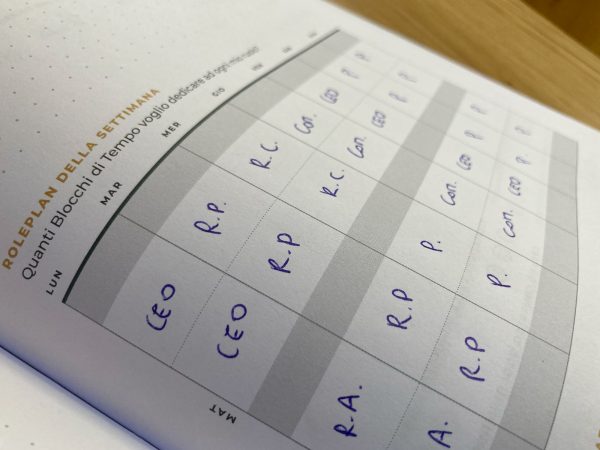 ROLEPLAN DELLA SETTIMANA
Quanti Blocchi di Tempo voglio dedicare ad ogni mio ruolo?
LUN MAR MER GIO VEN
CEO R.P. R.C. Con. CEO P. P.
CEO R.P R.C. Con. CEO P. P.
MAT
R.A. R.P P. Con. CEO P. P.
A. R.P P. Con. CEO P. P.